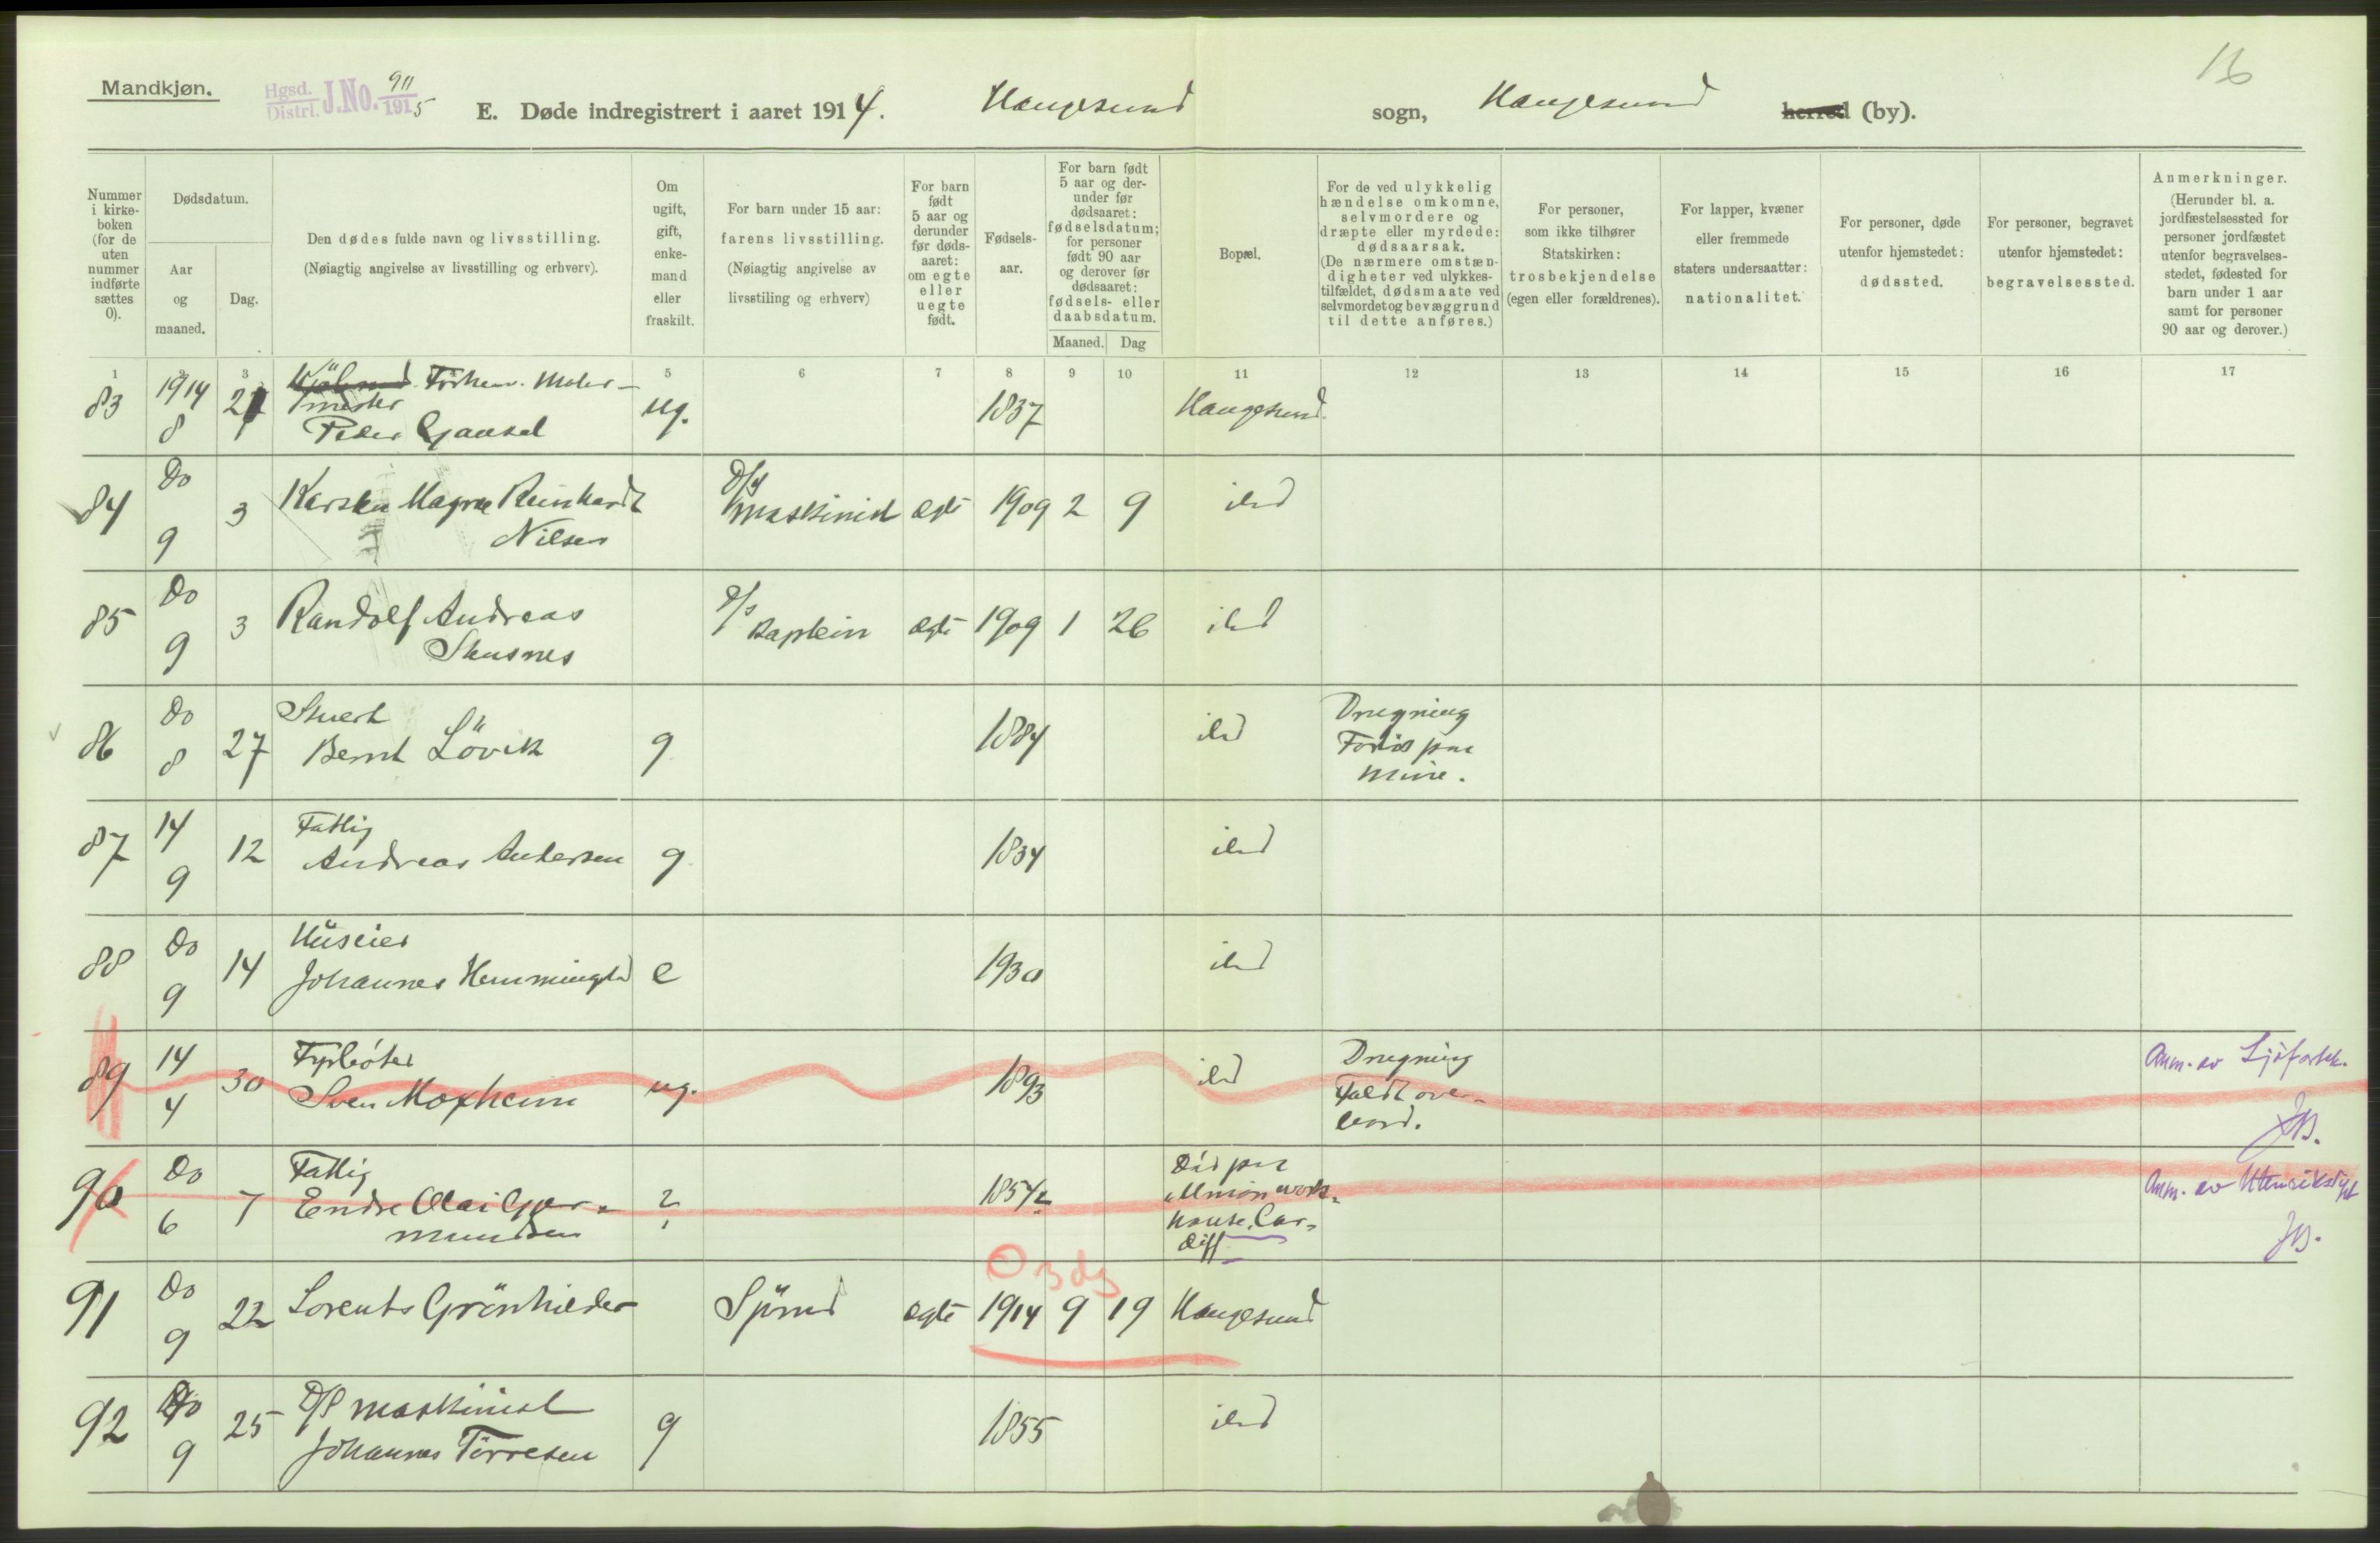 16
Mandkjøn.
Hgsd. Distri. J.No. 911 1915
E. Døde indregistrert i aaret 1914. Haugesund sogn, Haugesund herred (by).
Nummer i kirke-boken (for de uten nummer indførte sættes 0).
Dødsdatum.
Aar og maaned.
Dag.
Den dødes fulde navn og livsstilling.
(Nøiagtig angivelse av livsstilling og erhverv).
Om ugift, gift, enke-mand eller fraskilt.
For barn under 15 aar: farens livsstilling.
(Nøiagtig angivelse av livsstiling og erhverv)
For barn født 5 aar og derunder før døds-aaret: om egte eller uegte født.
Fødsels-aar.
For barn født 5 aar og der-under før dødsaaret: fødselsdatum; for personer født 90 aar og derover før dødsaaret: fødsels- eller daabsdatum.
Maaned. Dag
Bopæl.
For de ved ulykkelig hændelse omkomne, selvmordere og dræpte eller myrdede: dødsaarsak.
(De nærmere omstæn-digheter ved ulykkes-tilfældet, dødsmaate ved selvmordet og bevæggrund til dette anføres.)
For personer, som ikke tilhører Statskirken: trosbekjendelse (egen eller forældrenes).
For lapper, kvæner eller fremmede staters undersaatter: nationalitet.
For personer, døde utenfor hjemstedet: dødssted.
For personer, begravet utenfor hjemstedet: begravelsessted.
Anmerkninger.
(Herunder bl. a. jordfæstelsessted for personer jordfæstet utenfor begravelses-stedet, fødested for barn under 1 aar samt for personer 90 aar og derover.)
1 3 5 6 7 8 9 10 11 12 13 14 15 16 17
83 1914 8 21 Forhenv. Maler-
mester
Peder Gausel ug. 1837 Haugesund
84 Do 9 3 Karsten Magnus Reinhardt
Nilsen D/S maskinist egte 1909 2 9 ibd
85 Do 9 3 Randolf Andreas
Skusnes D/S kaptein egte 1909 1 26 ibd
86 Do 8 27 Stuert
Bernt Lövik g 1884 ibd Drugning
Forlis paa
mine.
87 14 9 12 Fattig
Andreas Andersen g 1834 ibd
88 Do 9 14 Huseier
Johannes Hemmingstd e 1930 ibd
89 14 4 30 Fyrböter
Sven Moxheim ug. 1893 ibd Drugning
Faldt over-
bord. Anm. av Sjöfartsk.
JB.
90 Do 6 7 Fattig
Endre Olai Gjer-
mundsen ? 1857/2 Död paa
"Union work-
house, Car-
diff Anm. av
JB.
3 dg
91 Do 9 22 Lorents Grönhilder Sjömd egte 1914 9 19 Haugesund
92 Do 9 25 D/S maskinist
Johannes Törresen g 1855 ibd